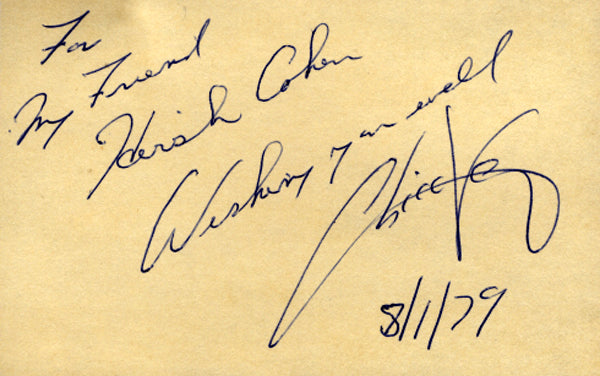 For
My Friend
Hersh Cohen
Wishing you well
8/1/79